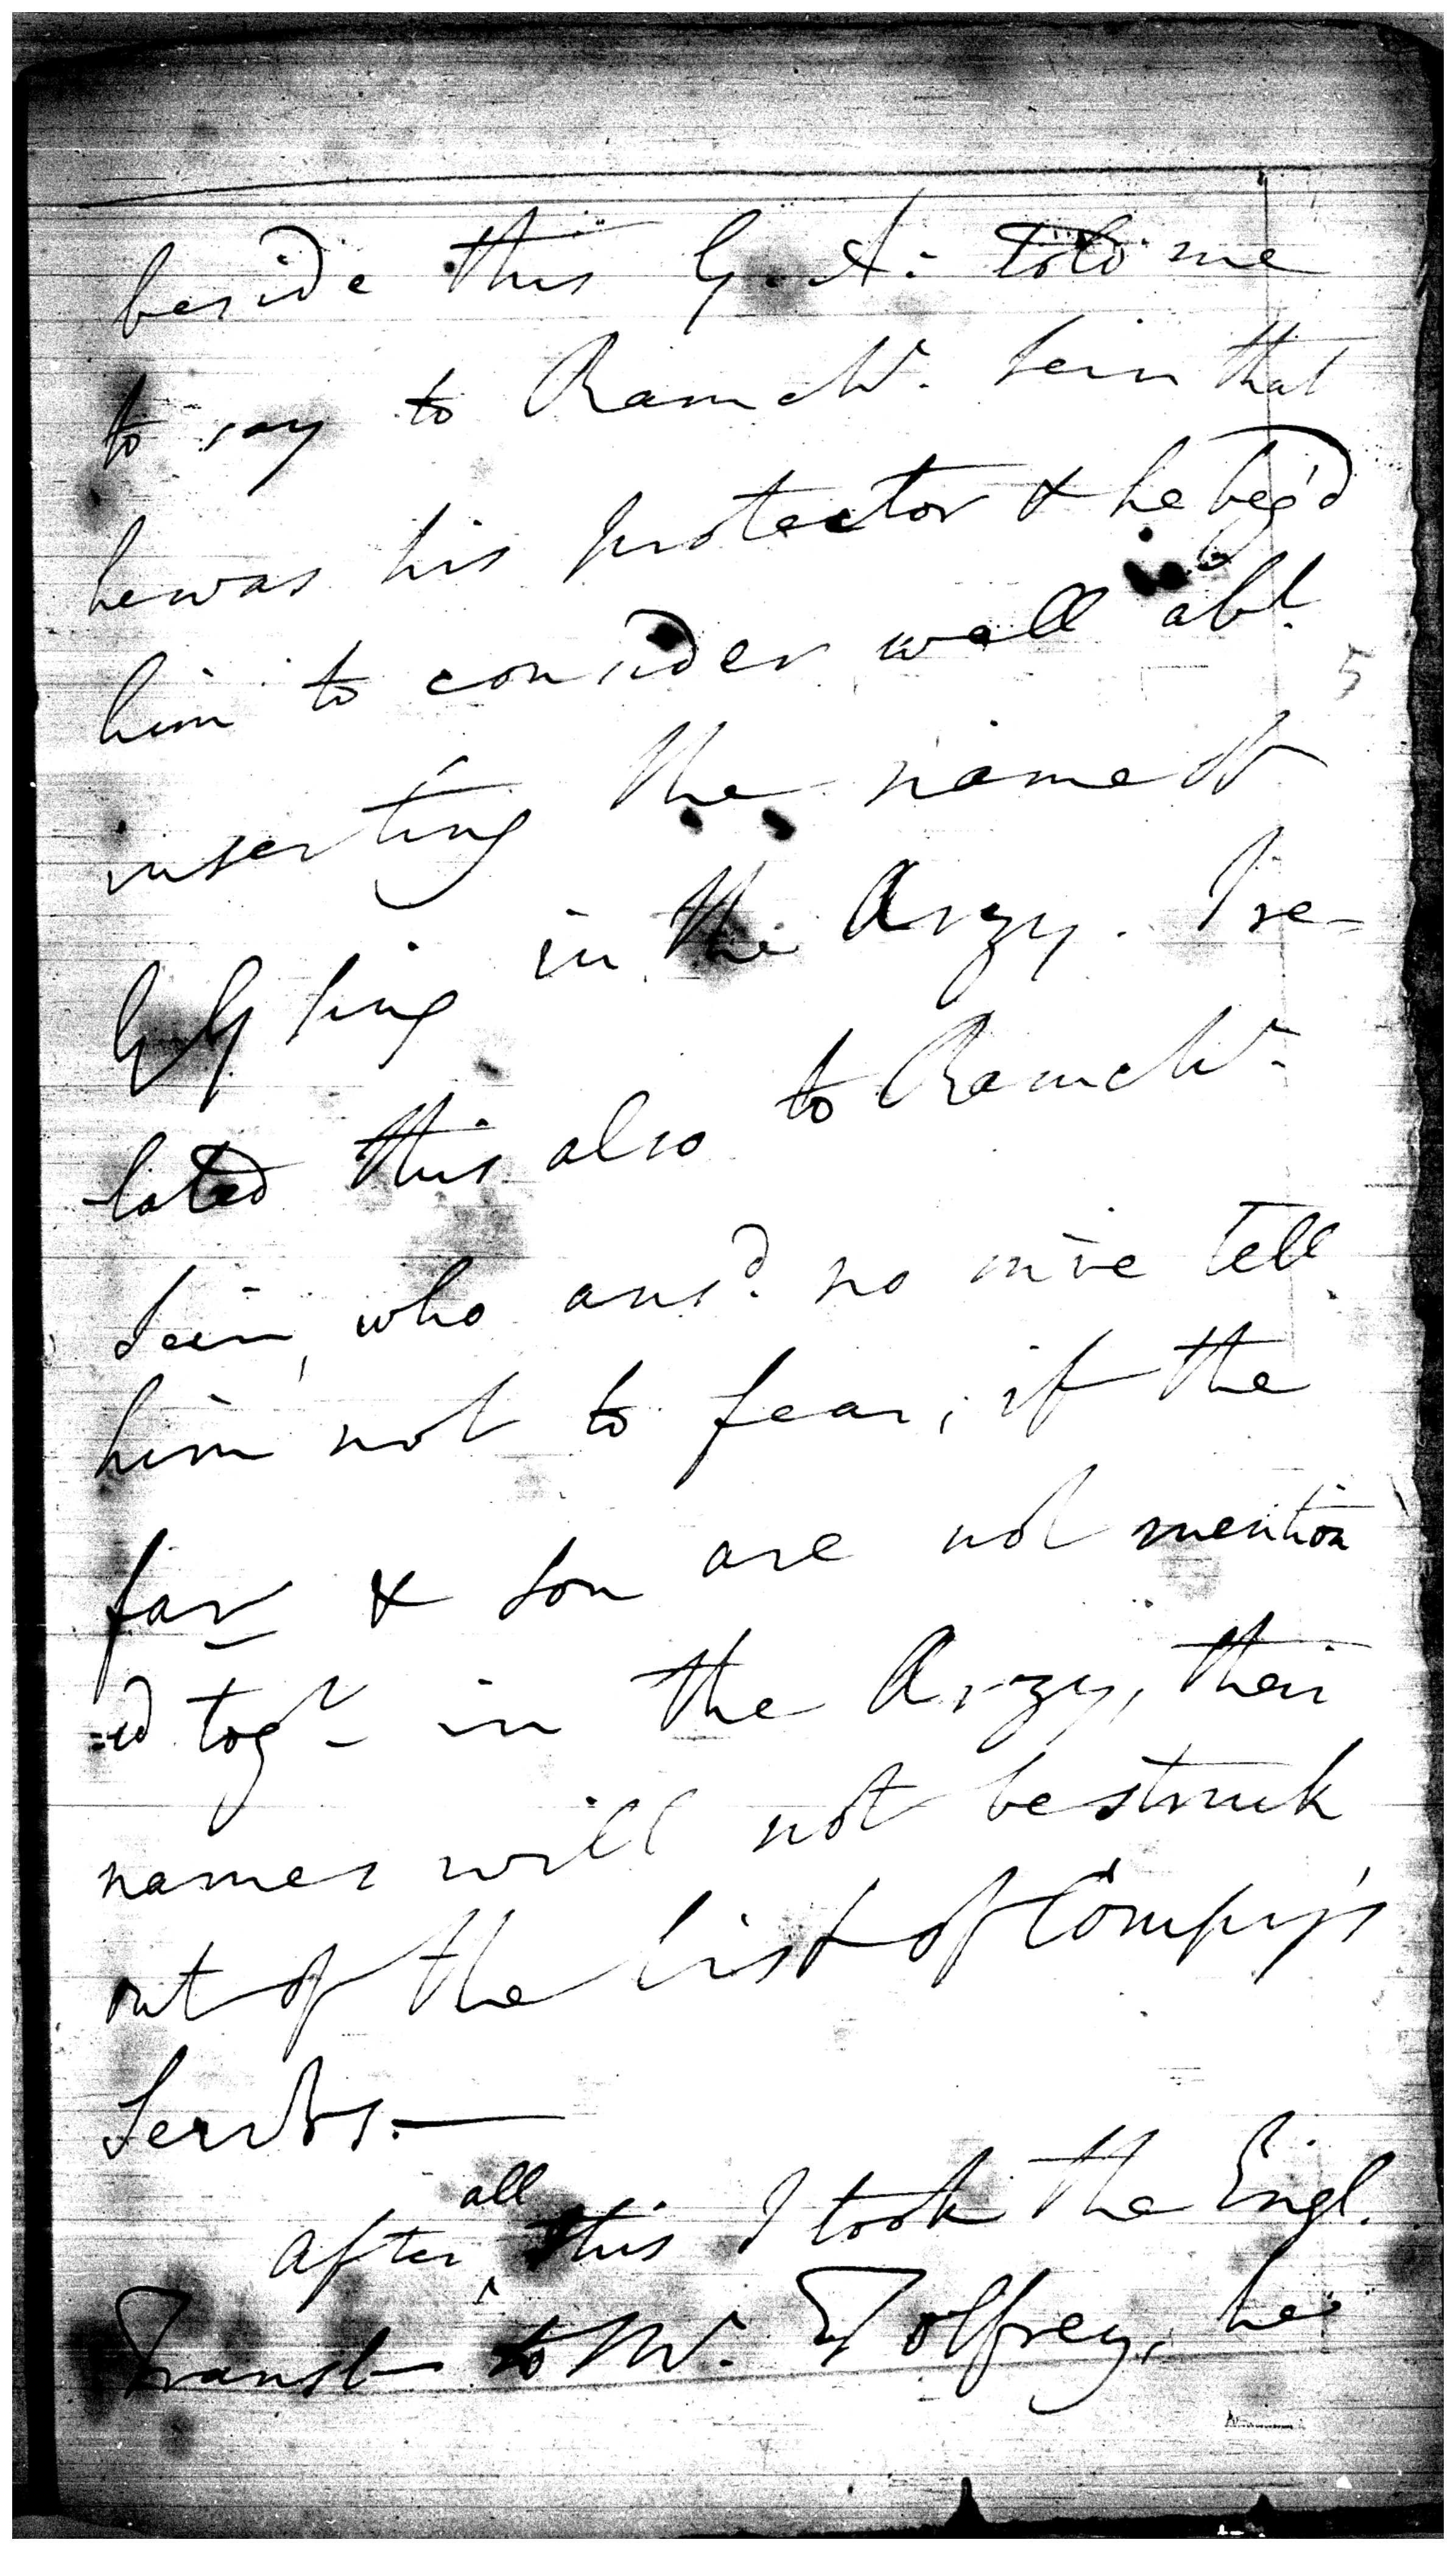 beside this G. A: told me
to say to Ramchr. Sein that
he was his protector & he beg'd
him to consider well abt.
inserting the name of
G G Sing in the Arzy. I re-
lated this also to Ramchr.
Sein, who ansd. no m've tell
him not to fear; if the
far & son are not mention
=ed togr in the Arzy, their
names will not be struck
out of the list of Compy's
Servts.—
after all this I took the Engl.
Transl to Mr. Tolfrey, he
5